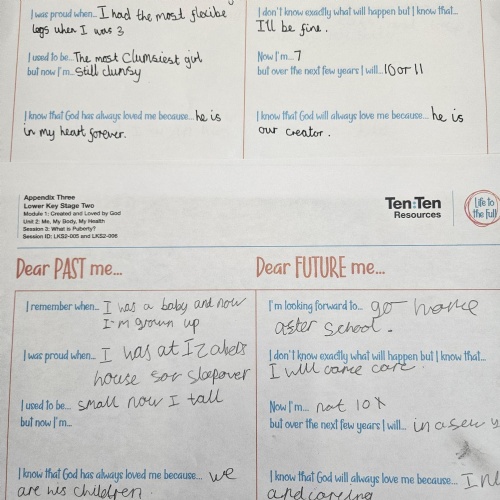 I was proud when... I had the most flexible
legs when I was 3
I used to be... The most Clumsiest girl
but now I'm... Still clunsy
I know that God has always loved me because... he is
in my heart forever.
I don't know exactly what will happen but I know that...
I'll be fine.
Now I'm... 7
but over the next few years I will... 10 or 11
I know that God will always love me because... he is
our creator.
Appendix Three
Lower Key Stage Two
Module 1: Created and Loved by God
Unit 2: Me, My Body, My Health
Session 3: What is Puberty?
Session ID: LKS2-005 and LKS2-006
Ten:Ten
Resources
Life to
the full
Dear PAST me...
I remember when... I was a baby and now
I'm grown up
I was proud when... I was at Izabels
house for sleepover
I used to be... small now I tall
but now I'm...
I know that God has always loved me because... we
are his children.
Dear FUTURE me...
I'm looking forward to... go home
after school.
I don't know exactly what will happen but I know that...
I will care.
Now I'm... not 10
but over the next few years I will... in a few
I know that God will always love me because... I
and caring